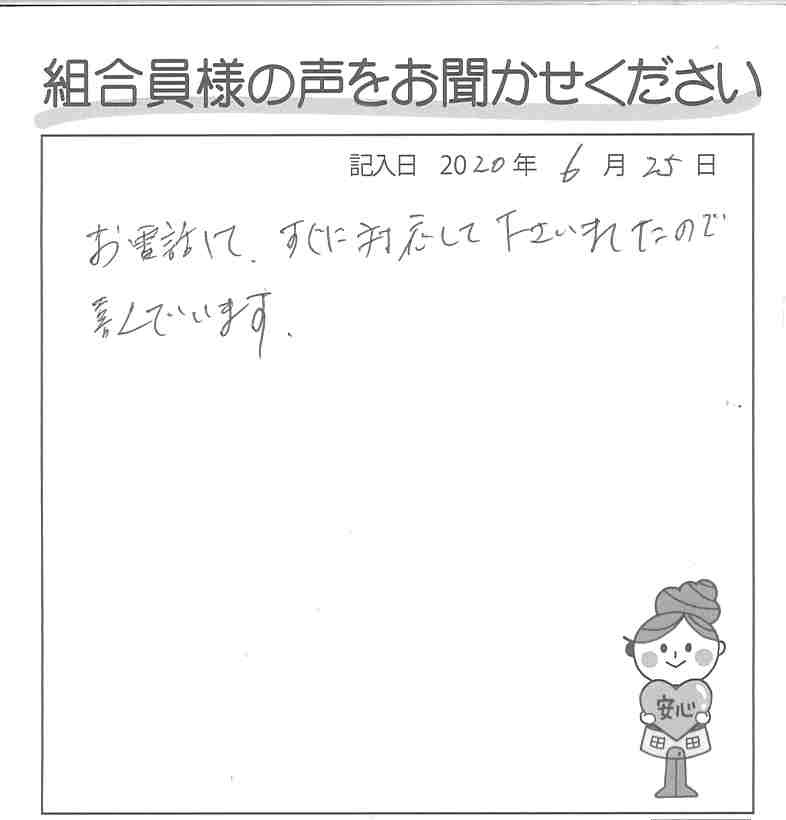 組合員様の声をお聞かせください
記入日 2020年 6月 25日
お電話にて、すぐに対応して下さいましたので
喜んでいます.
安心